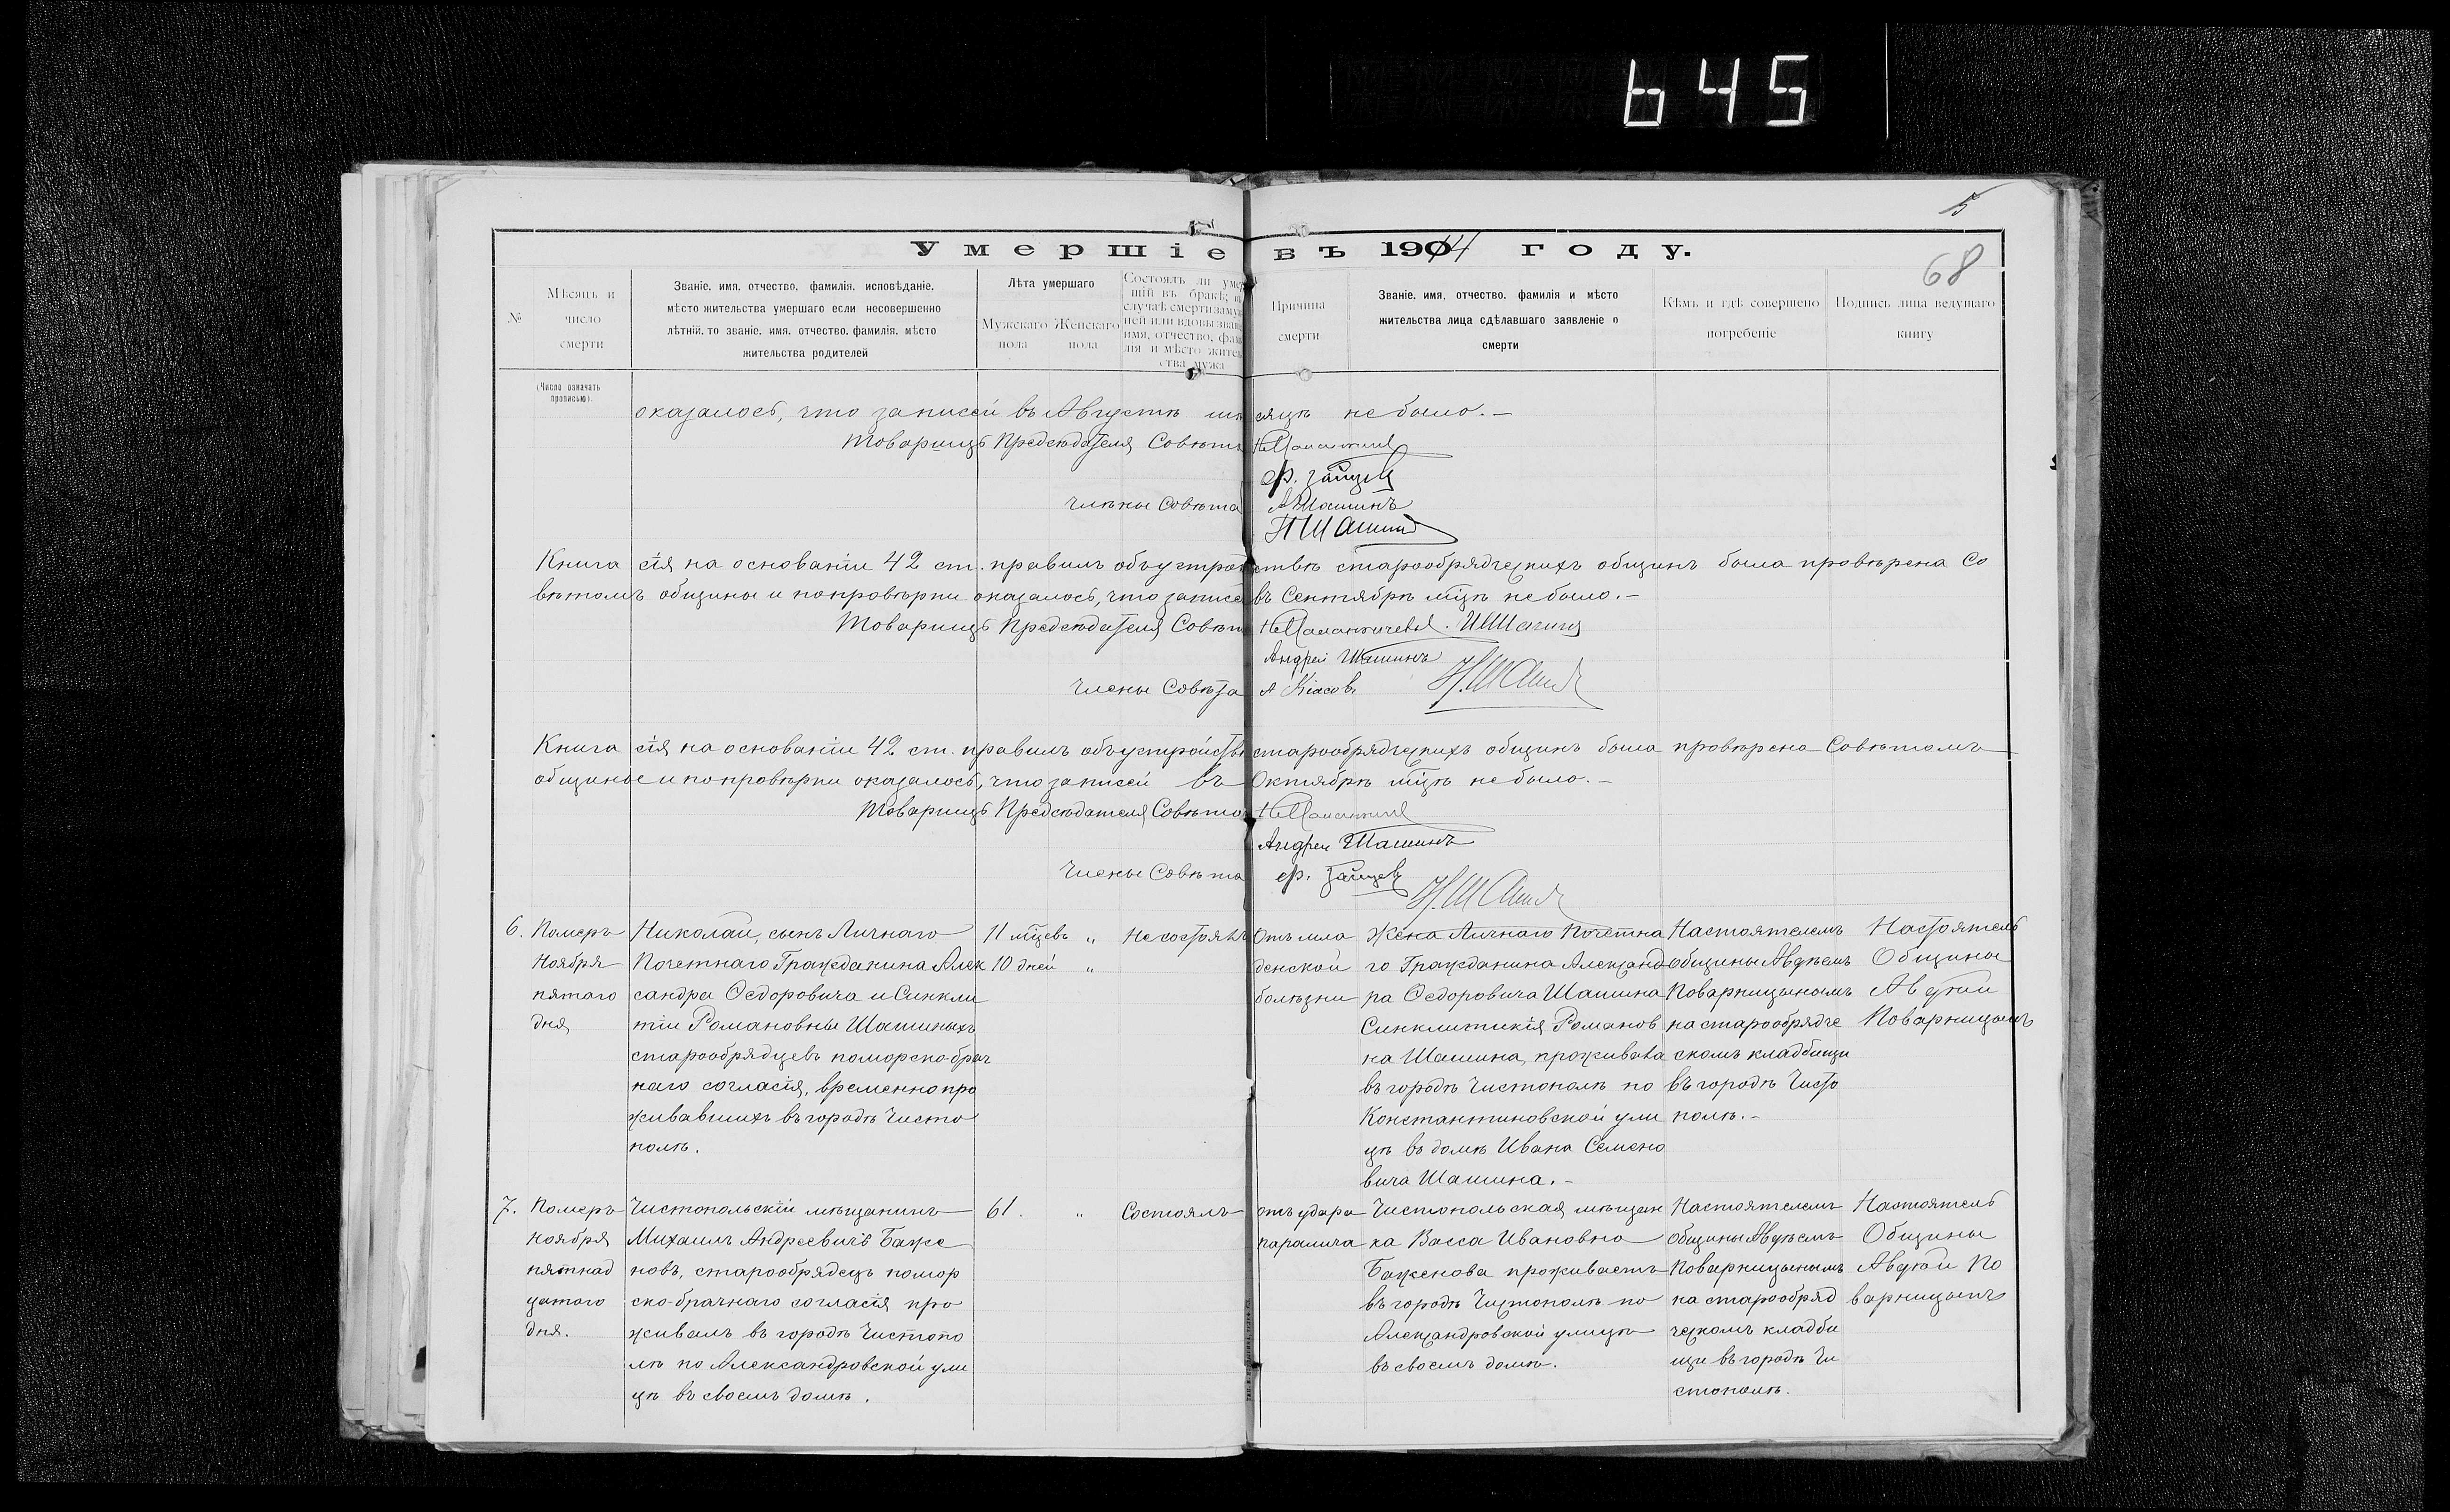 645
5
68
Умершіе въ 1914 году.
№
Мѣсяцъ и число смерти
Званіе, имя, отчество, фамилія, исповѣданіе,
мѣсто жительства умершаго если несовершенно
лѣтній, то званіе, имя, отчество, фамилія, мѣсто
жительства родителей
Лѣта умершаго
Мужскаго пола
Женскаго пола
Состоялъ ли
шій въ бракѣ;
случаѣ смерти
ней или вдовы
имя, отчество,
лія и мѣсто
ства мужа
Причина смерти
Званіе, имя, отчество, фамилія и мѣсто
жительства лица сдѣлавшаго заявленіе о
смерти
Кѣмъ и гдѣ совершено
погребеніе
Подпись лица ведущаго
книгу
(Число означать
прописью).
оказалось, что записей въ Августѣ мѣсяцѣ не было.—
Товарищъ Предсѣдателя Совѣта
Ф. Зайцевъ
Члѣны Совѣта А Шашинъ
Н Шашинъ
Книга сія на основаніи 42 ст. правилъ объ устройствѣ старообрядческихъ общинъ была провѣрена Со
вѣтомъ общины и по провѣрки оказалось, что записей въ Сентябрѣ мцѣ не было.—
Товарищъ Предсѣдателя Совѣта
Андрей Шашинъ
Члены Совѣта А Кіасовъ Н. Шашинъ
Книга сія на основаніи 42 ст. правилъ объ устройствѣ старообрядческихъ общинъ была провѣрена Совѣтомъ
общины и по провѣрки оказалось, что записей въ Октябрѣ мцѣ не было.—
Товарищъ Предсѣдателя Совѣта
Андрей Шашинъ
Члены Совѣта Ф. Зайцевъ
Н. Шашинъ
6.
Померъ
Ноября
пятаго
дня
Николай, сынъ Личнаго
Почетнаго Гражданина Алек
сандра Ѳедоровича и Синкли
тіи Романовны Шашиныхъ
старообрядцевъ поморско-брач
наго согласія, временно про
живавшихъ въ городѣ Чисто
полѣ.
11 мцевъ "
10 дней "
Не состоялъ
Отъ мла
денской
болѣзни
Жена Личнаго Почетна
го Гражданина Александ
ра Ѳедоровича Шашина
Синклитикія Романов
на Шашина, прожива
въ городѣ Чистополѣ по
Константиновской ули
цѣ въ домѣ Ивана Семено
вича Шашина.—
Настоятелемъ
общины Авдѣемъ
Поварницынымъ
на старообрядче
скомъ кладбищи
въ городѣ Чисто
полѣ.—
Настоятель
Общины
Авдѣй
Поварницынъ
7.
Померъ
ноября
пятнад
цатаго
дня.
Чистопольскій мѣщанинъ
Михаилъ Андреевичъ Баже
новъ, старообрядецъ помор
ско-брачнаго согласія про
живалъ въ городѣ Чистопо
лѣ по Александровской ули
цѣ въ своемъ домѣ.
61. "
Состоялъ
отъ удара
паралича
Чистопольская мѣщан
ка Васса Ивановна
Баженова проживаетъ
въ городѣ Чистополѣ по
Александровской улицѣ
въ своемъ домѣ.
Настоятелемъ
общины Авдѣемъ
Поварницынымъ
на старообряд
ческомъ кладби
щи въ городѣ Чи
стополѣ.
Настоятель
Общины
Авдѣй По
варницынъ